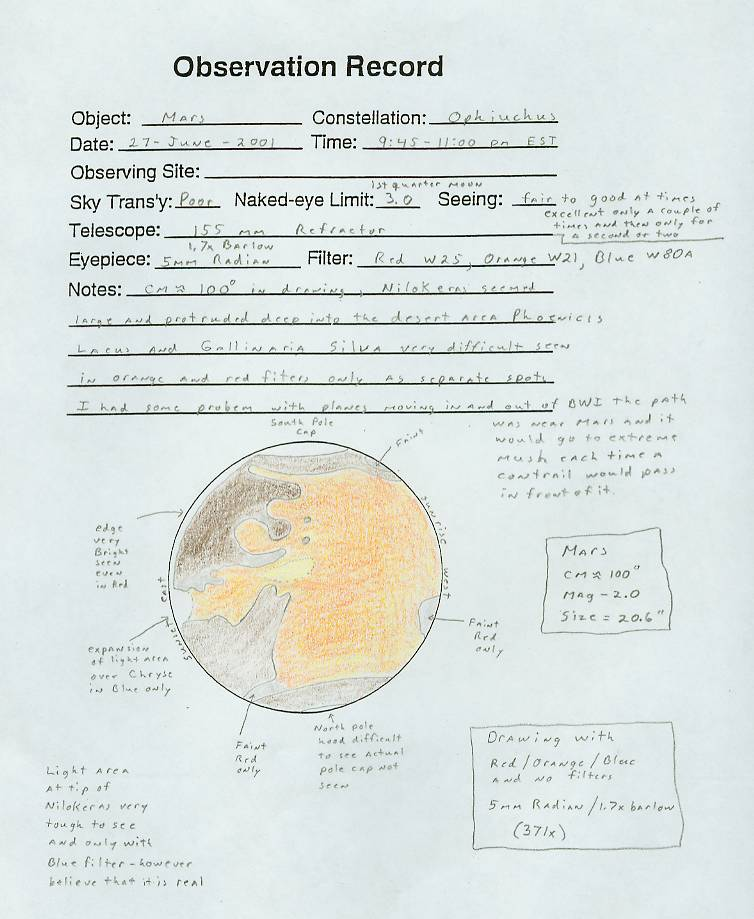 Observation Record
Object: Mars Constellation: Ophiuchus
Date: 27-June-2001 Time: 9:45-11:00 pm EST
Observing Site:
1st quarter moon
Sky Trans'y: Poor Naked-eye Limit: 3.0 Seeing: fair to good at times
excellent only a couple of
times and then only for
a second or two
Telescope: 155 mm Refractor
1.7x Barlow
Eyepiece: 5mm Radian Filter: Red W25, Orange W21, Blue W80A
Notes: CM ≈ 100° in drawing, Nilokeras seemed
large and protruded deep into the desert area Phoenicis
Lacus and Gallinaria Silva very difficult seen
in orange and red fiters only as separate spots
I had some probem with planes moving in and out of BWI the path
was near Mars and it
would go to extreme
mush each time a
contrail would pass
in front of it.
South Pole
Cap
Faint
sunrise west
edge
very
Bright
seen
even
in Red
Mars
CM ≈ 100°
Mag -2.0
Size = 20.6"
sunset east
Faint
Red
only
expansion
of light area
over Chryse
in Blue only
Faint
Red
only
North pole
hood difficult
to see actual
pole cap not
seen
Drawing with
Red/Orange/Blue
and no filters
5mm Radian/1.7x barlow
(371x)
Light Area
at tip of
Nilokeras very
tough to see
and only with
Blue filter-however
believe that it is real